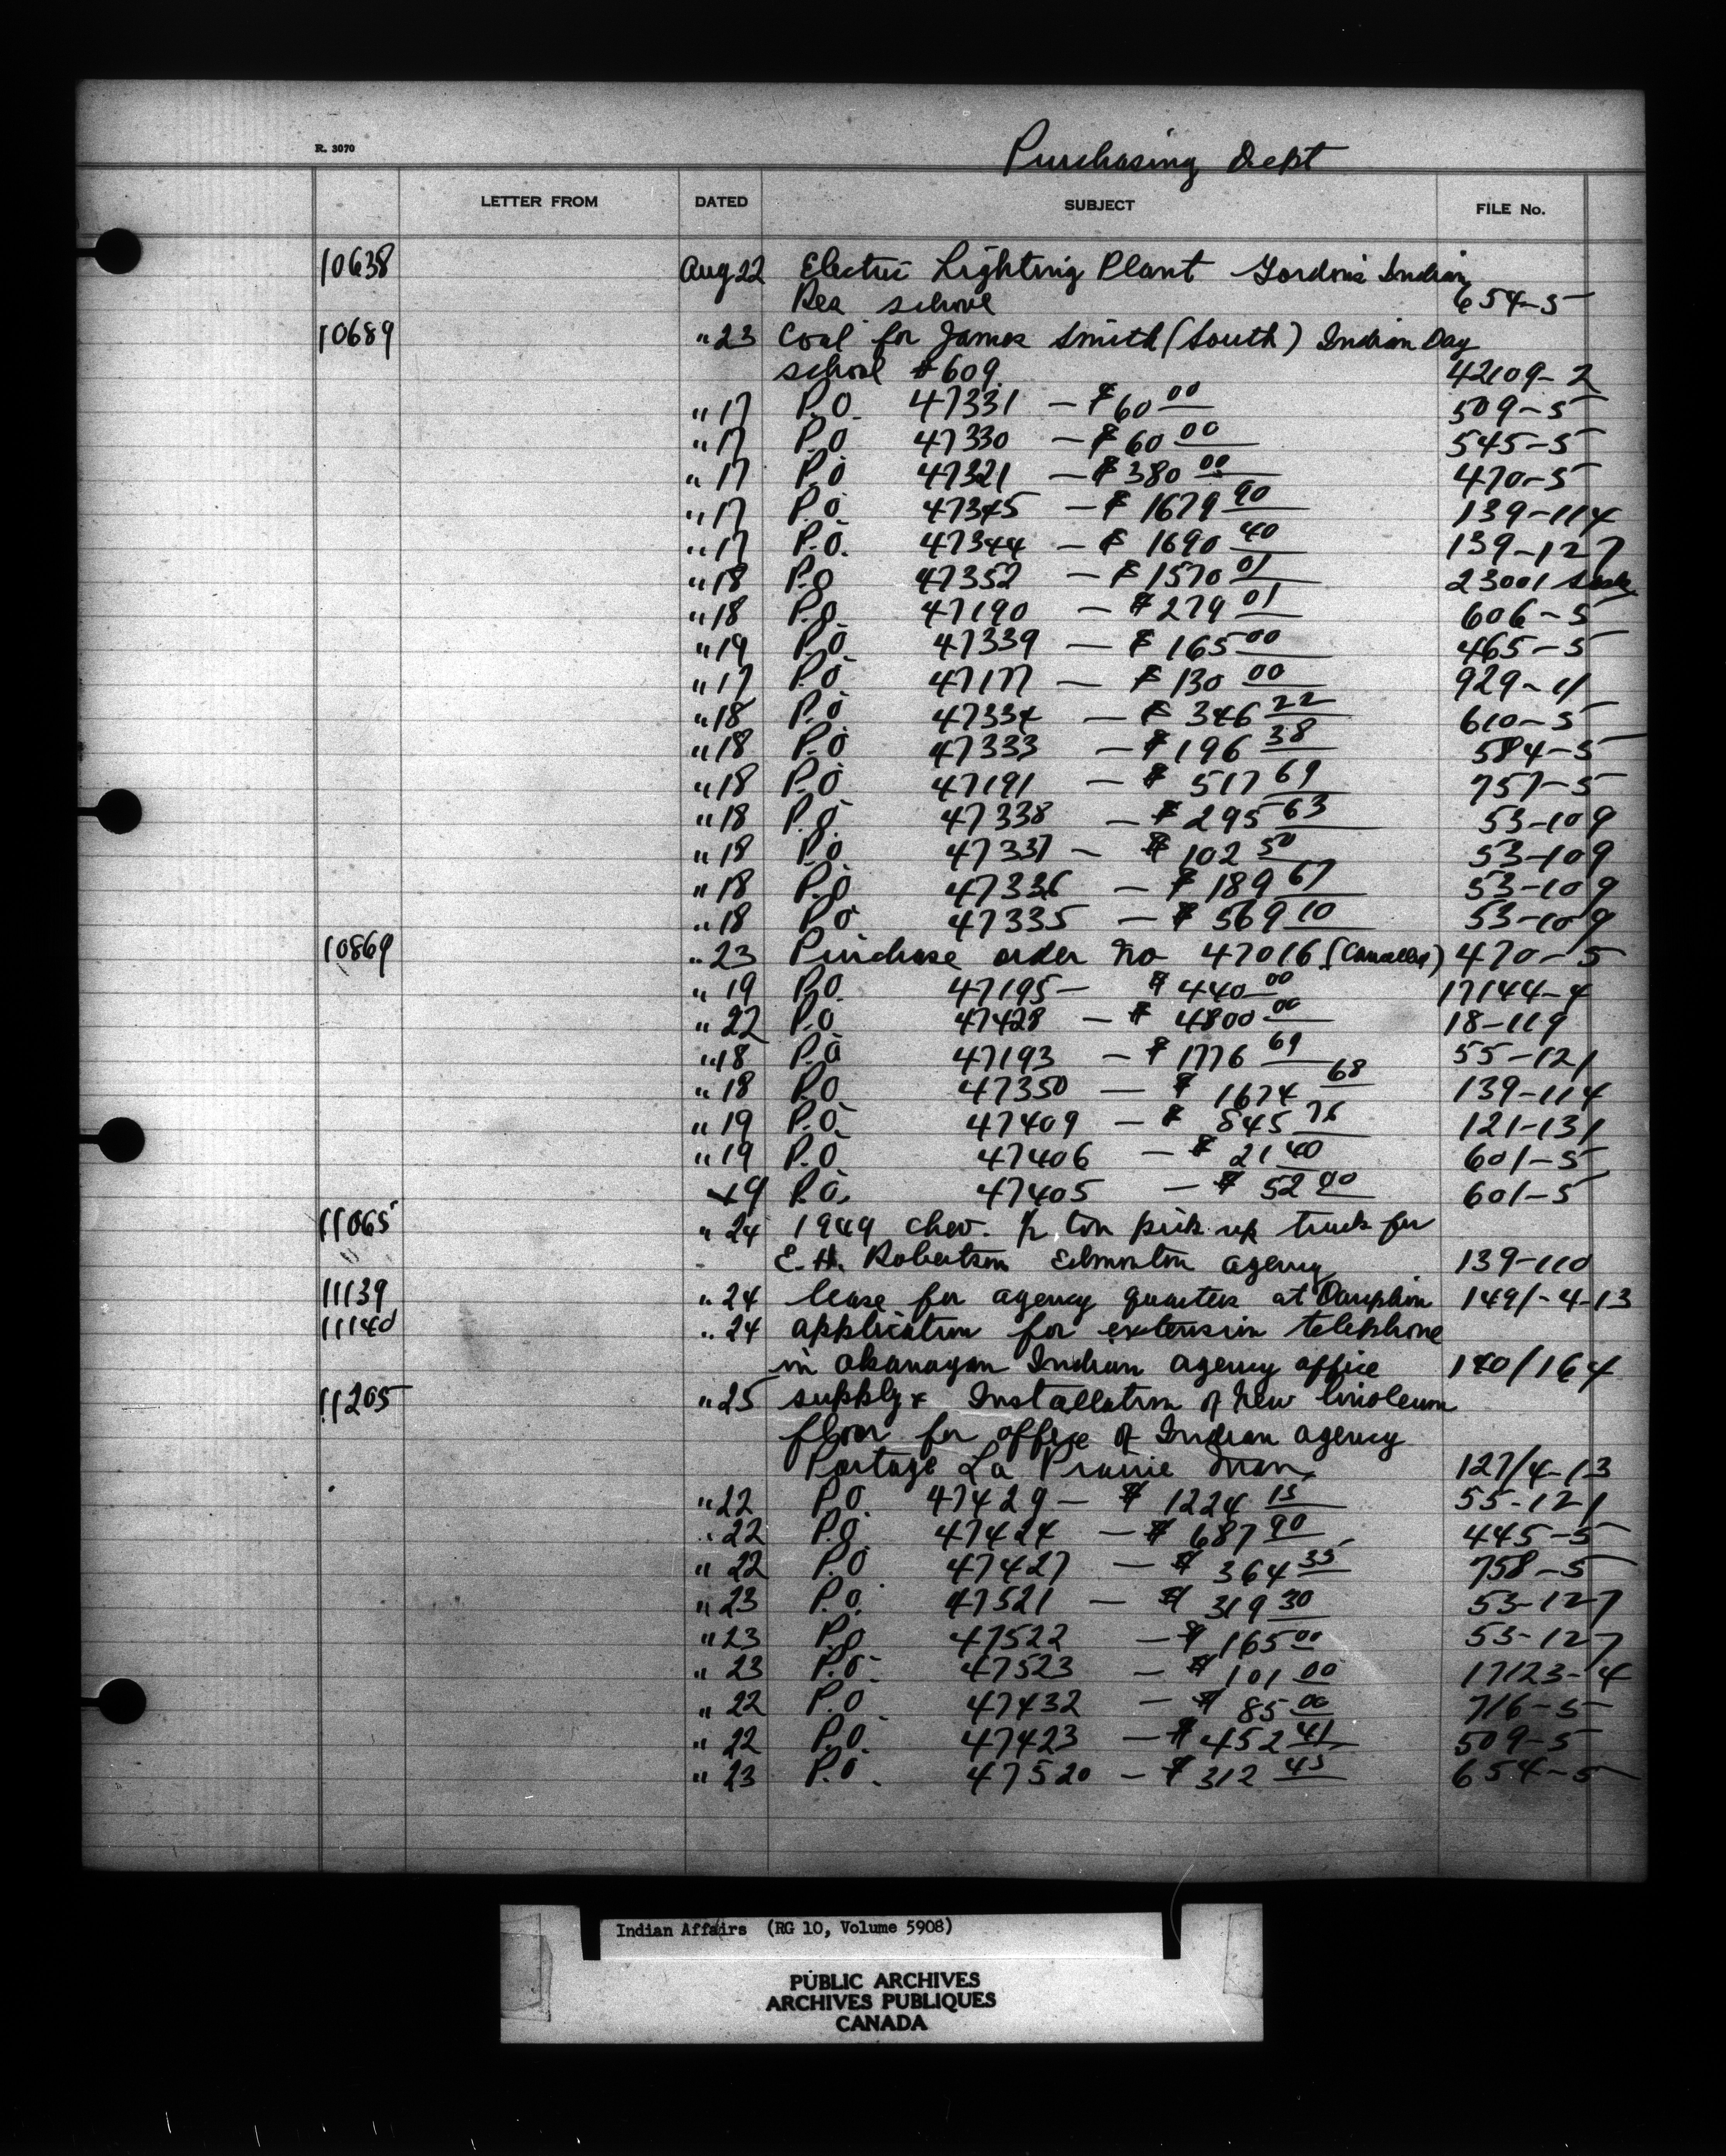 Purchasing Dept
R. 3070
LETTER FROM DATED SUBJECT FILE No.
10638 Aug 22 Electric Lighting Plant Gordon's Indian
Res school 654-5
10689 " 23 Coal for James Smith (South) Indian Day
school #609 42109-2
" 17 P.O. 47331 — $60 00 509-5
" 17 P.O 47330 — $60 00 545-5
" 17 P.O 47321 — $380 00 470-5
" 17 P.O 47345 — $1679 90 139-114
" 17 P.O. 47344 — $1690 40 139-127
" 18 P.O 47352 — $1570 01 23001
" 18 P.O. 47190 — $279 01 606-5
" 19 P.O 47339 — $165 00 465-5
" 17 P.O 47177 — $130 00 929-11
" 18 P.O 47334 — $346 22 610-5
" 18 P.O 47333 — $196 38 584-5
" 18 P.O 47191 — $517 69 757-5
" 18 P.O. 47338 — $295 63 53-109
" 18 P.O 47337 — $102 50 53-109
" 18 P.O 47336 — $189 67 53-109
" 18 P.O 47335 — $569 10 53-109
10869 " 23 Purchase order no 47016 (Cancelled) 470-5
" 19 P.O. 47195 — $440 00 17144-4
" 22 P.O 47428 — $4800 00 18-119
" 18 P.O 47193 — $1776 69 55-121
" 18 P.O 47350 — $1674 68 139-114
" 19 P.O. 47409 — $845 75 121-131
" 19 P.O 47406 — $21 40 601-5
19 P.O. 47405 — $52 00 601-5
11065 " 24 1949 Chev. 1/2 ton pick up truck for
E. H. Robertson Edmonton agency 139-110
11139 " 24 lease for agency quarters at Dauphin 149/-4-13
11140 " 24 application for extension telephone
in Okanagan Indian agency office 140/164
11205 " 25 supply & Installation of New linoleum
floor for office of Indian agency
Portage La Prairie Man. 127/4-13
" 22 P.O. 47429 — $1224 15 55-121
" 22 P.O. 47424 — $687 90 445-5
" 22 P.O 47427 — $364 35 758-5
" 23 P.O. 47521 — $319 30 53-127
" 23 P.O 47522 — $165 00 53-127
" 23 P.O. 47523 — $101 00 17123-4
" 22 P.O. 47432 — $85 00 716-5
" 22 P.O. 47423 — $452 41 509-5
" 23 P.O. 47520 — $312 45 654-5
Indian Affairs (RG 10, Volume 5908)
PUBLIC ARCHIVES
ARCHIVES PUBLIQUES
CANADA